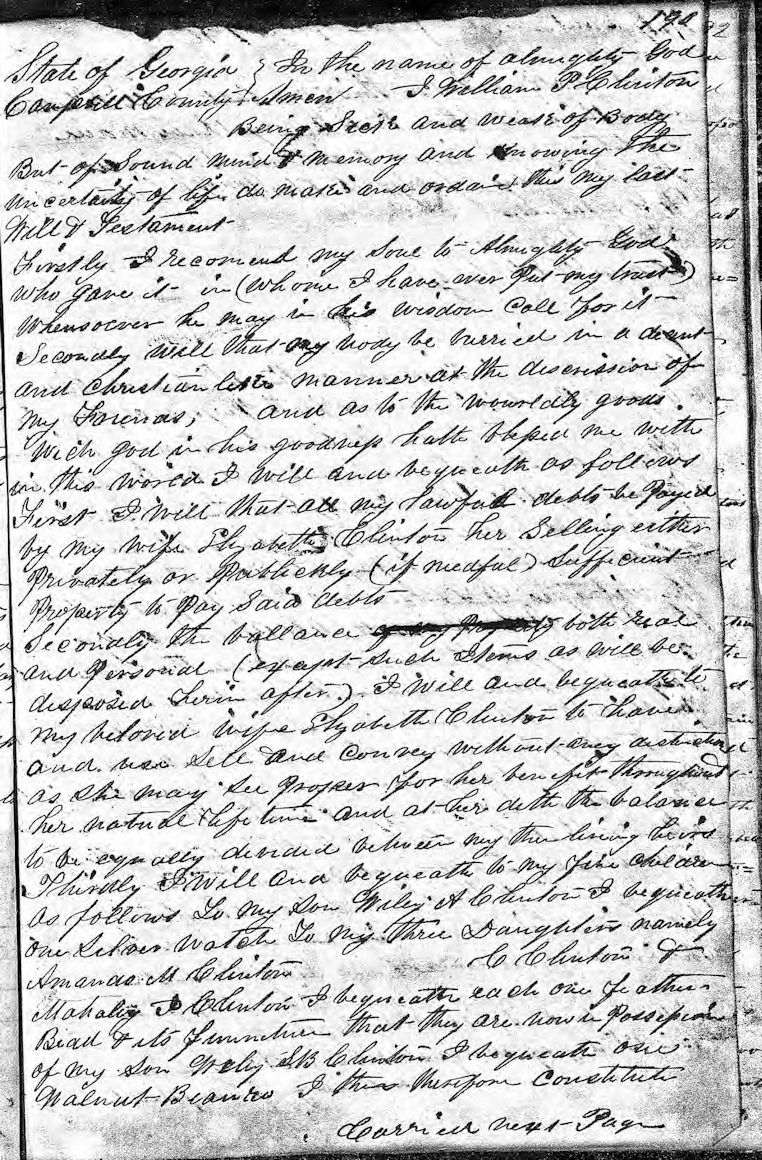 State of Georgia } In the name of almighty God
Campbell County } Amen I William P Clinton
Being Sick and weak of Body
But of Sound mind & memory and knowing the
uncertainty of life do make and ordain this my last
Will & Testament
Firstly I recomend my Soul to Almighty God
who gave it in (whome I have ever Put my trust)
whensoever he may in his wisdom Call for it
Secondly will that my body be burried in a decent
and christian like manner at the discrission of
my Friends, and as to the wourldly goods
wich god in his goodness hath blessed me with
in this world I will and bequeath as follows
First I will that all my lawful debts be Payed
by my wife Elyzabeth Clinton her Selling either
Privately or Publickly (if needful) Sufficient
Property to Pay Said debts
Secondly the ballance of my Property both real
and Personal (except such Items as will be
disposed herin after) I will and bequeath to
my beloved wife Elyzabeth Clinton to have
and use Sell and Convey without any
as She may See Proper for her benefit throughout
her natural life time and at her deth the balance
to be equally devided between my then living heirs
Thirdly I will and bequeath to my five children
as follows To my Son Wiley A Clinton I bequeath
one Silver watch To my three Daughters namely
Amanda M Clinton C Clinton &
Clinton I bequeath each one feather
Bead & its furniture that they are now in Possession
of my Son B Clinton I bequeath one
Walnut Beaurea I therefore Constitute
Carried next Page